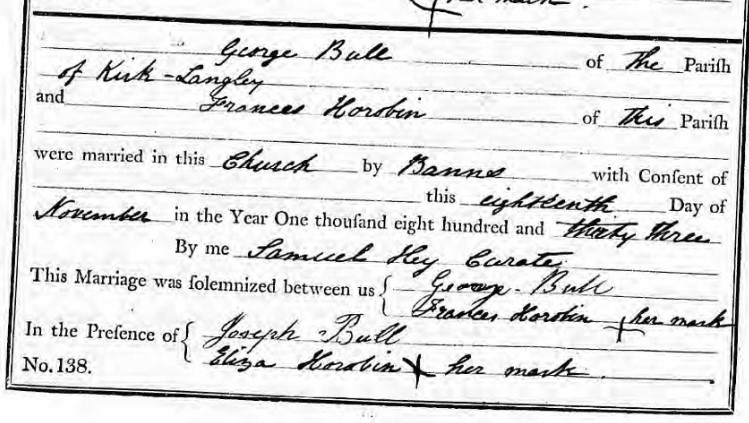 her mark.
George Bull of The Pariſh
of Kirk-Langley
and Frances Horobin of this Pariſh
were married in this Church by Banns with Conſent of
this eighteenth Day of
November in the Year One thouſand eight hundred and thirty three
By me Samuel Hey Curate
This Marriage was ſolemnized between us { George Bull
Frances Horobin + her mark
In the Preſence of { Joseph Bull
Eliza Horobin + her mark.
No. 138.